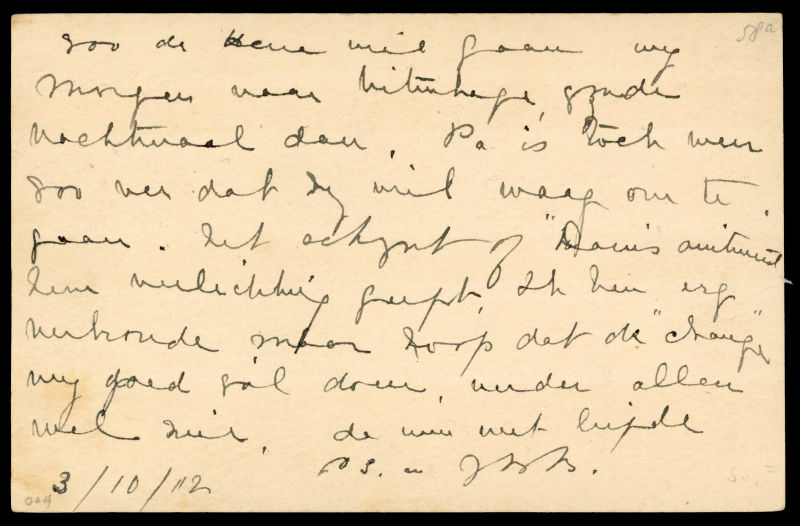 58a
zoo de Heer wil gaan wy
morgen naar Uitenhage, gzonder
nachtmaal daar. Pa is toch weer
zoo ver dat hy wil waag om te
gaan. Het schynt of "Davis ointment"
hem verlichting geeft, Ik ben erg
verkoude maar hoop dat de "change"
my goed zal doen, verder allen
wel hier, de uwe met liefde
P.S. en
3/10/12
004